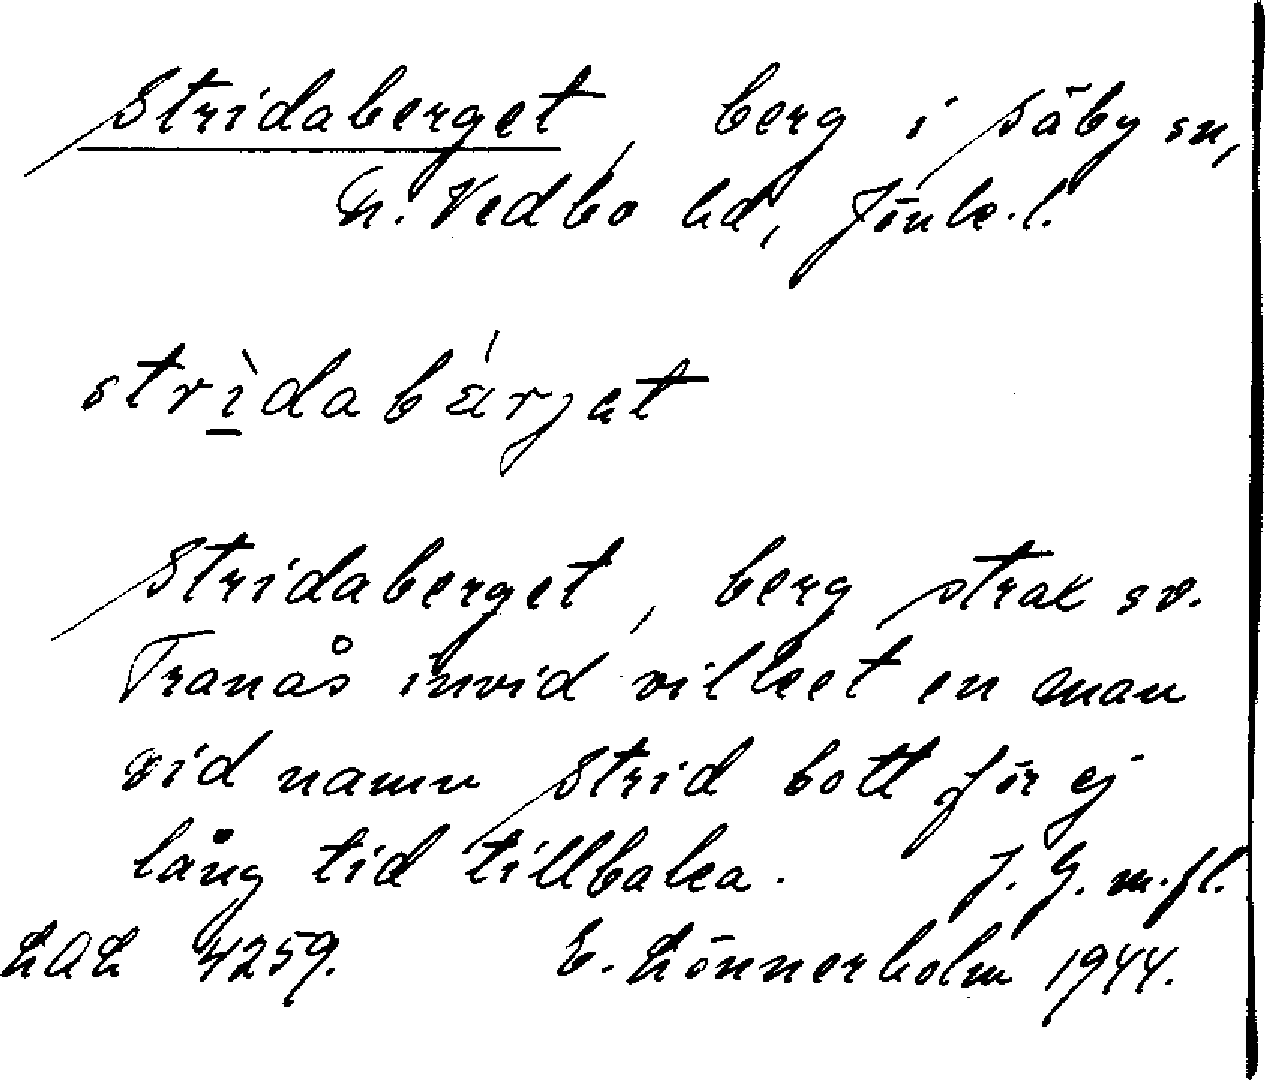 Stridaberget, berg i Säby sn,
N. Vedbo hd, Jönk.l.
strìdabä́rjat
Stridaberget, berg strax sv.
Tranås invid vilket en man
vid namn Strid bott för ej
lång tid tillbaka. J. G. m.fl.
LAL 4259. E. Lönnerholm 1944.